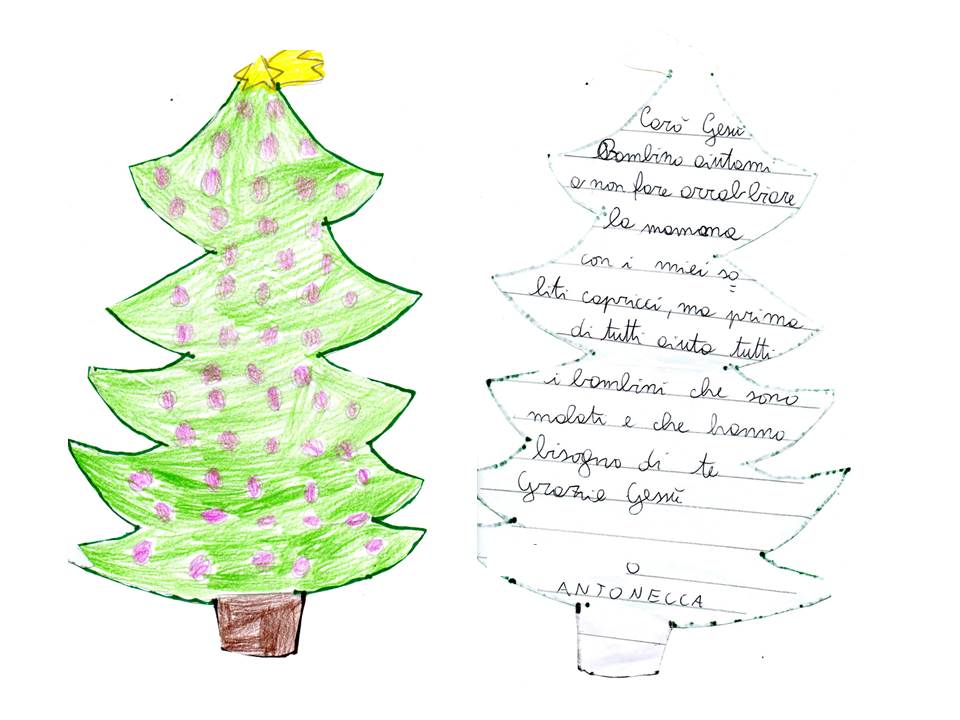 Caro Gesù
Bambino aiutami
a non fare arrabbiare
la mamana
con i miei so
liti capricci, ma prima
di tutti aiuta tutti
i bambini che sono
malati e che hanno
bisogno di te
Grazie Gesù
O
ANTONECCA